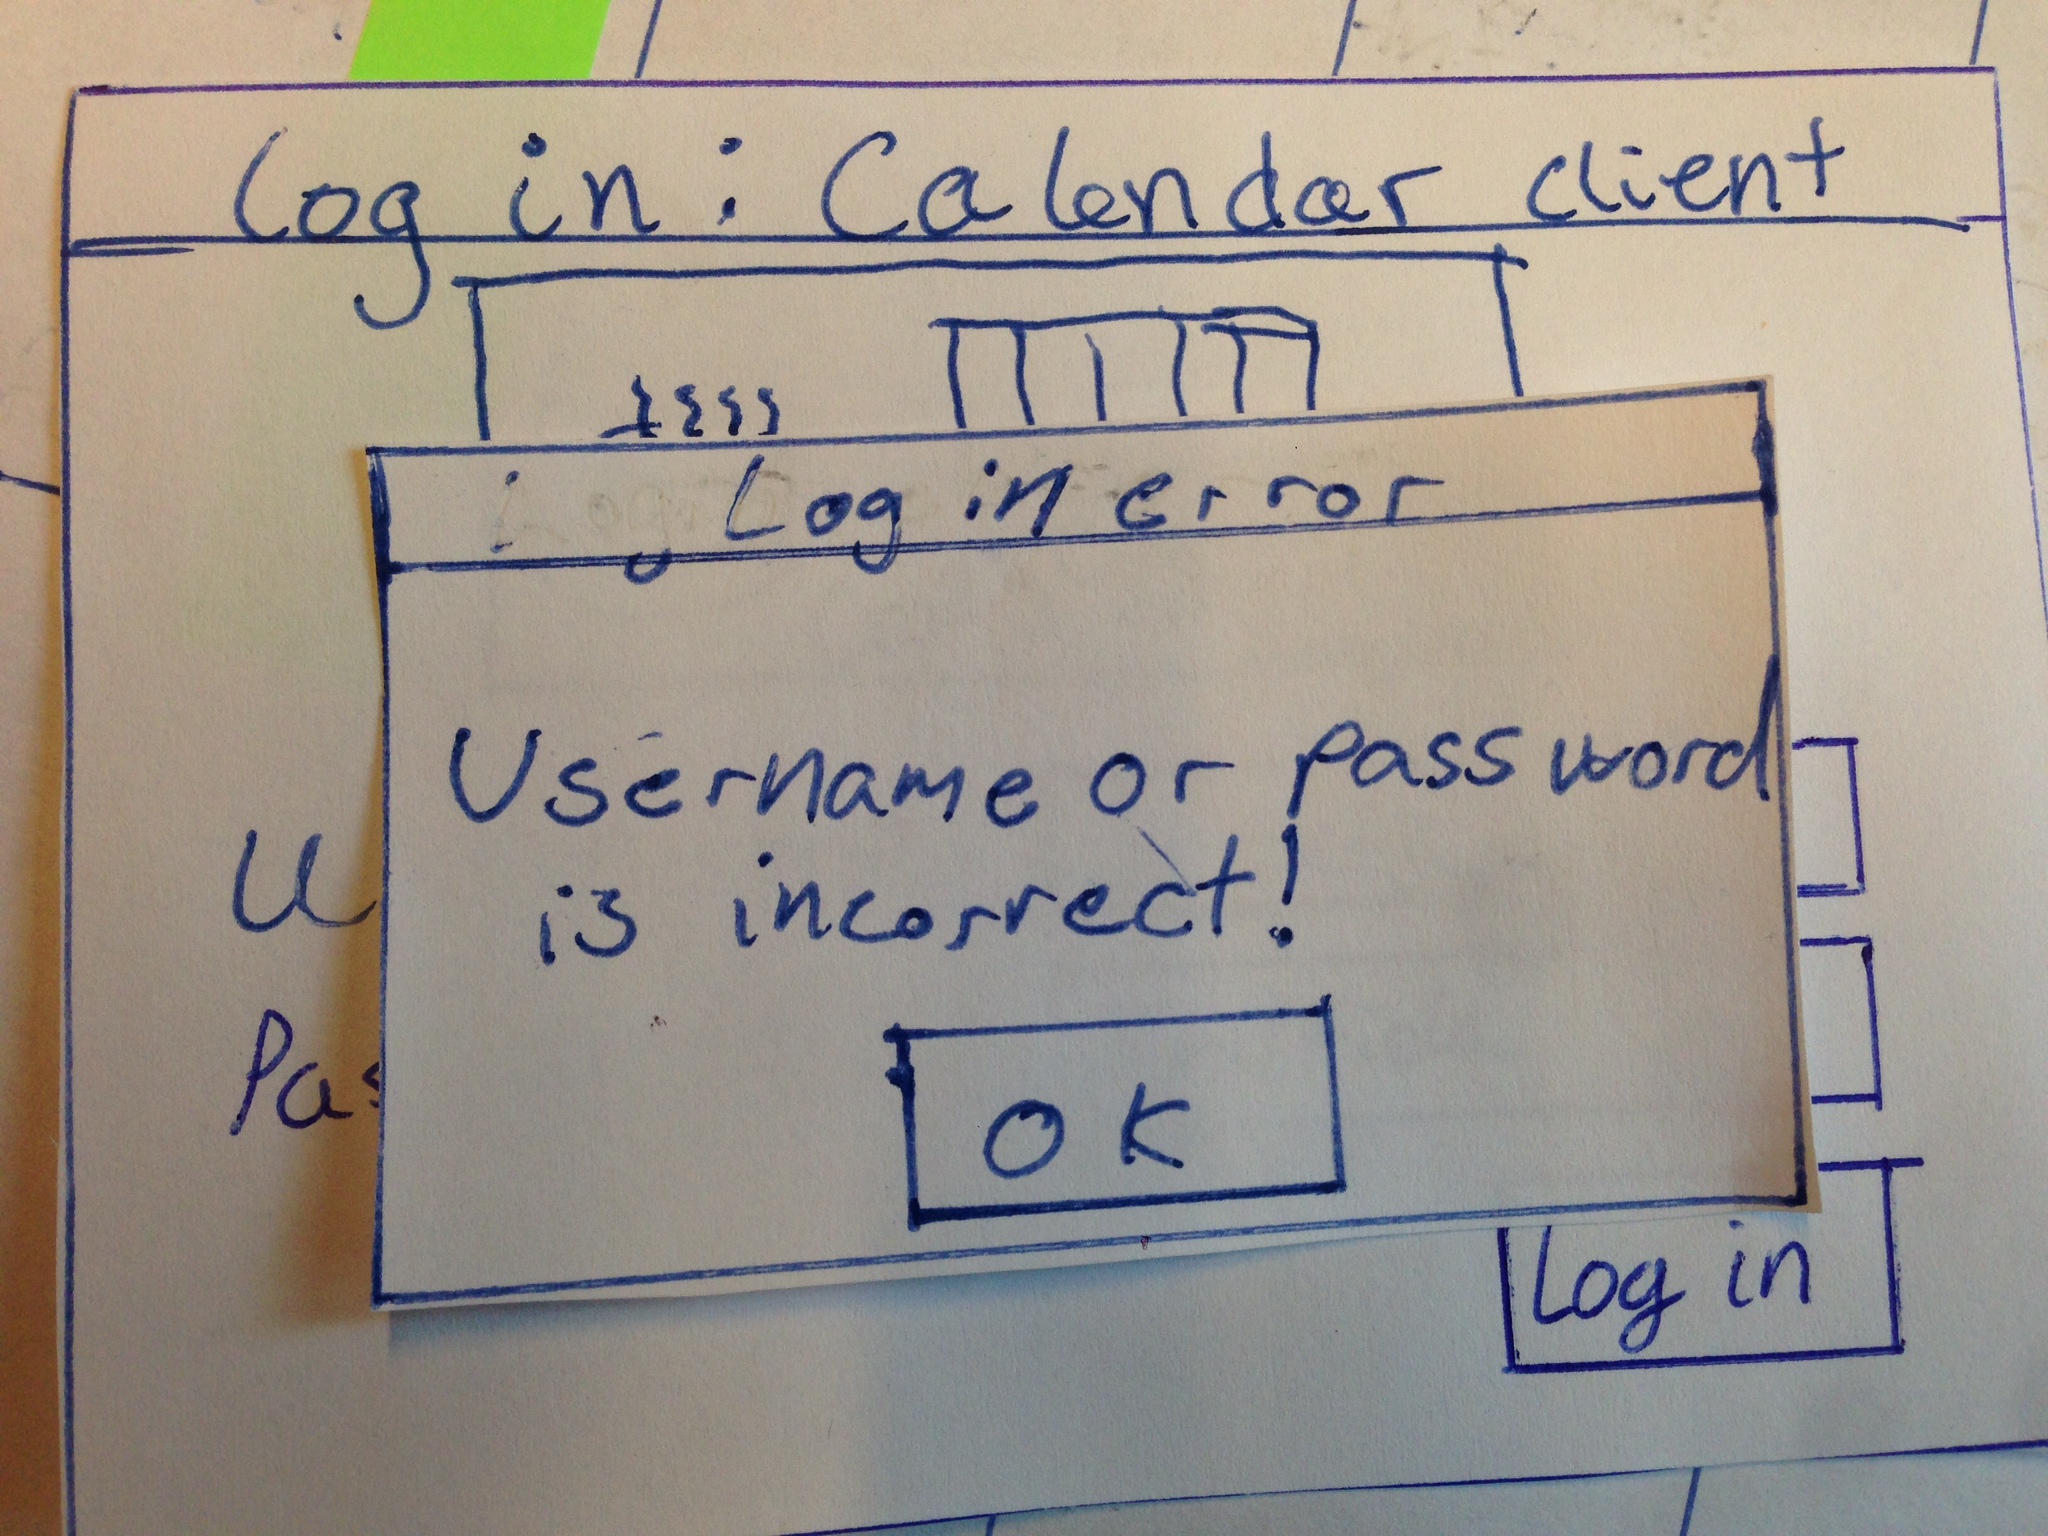 Log in: Calendar client
Log in error
Username or password
is incorrect!
U
Pas
OK
Log in